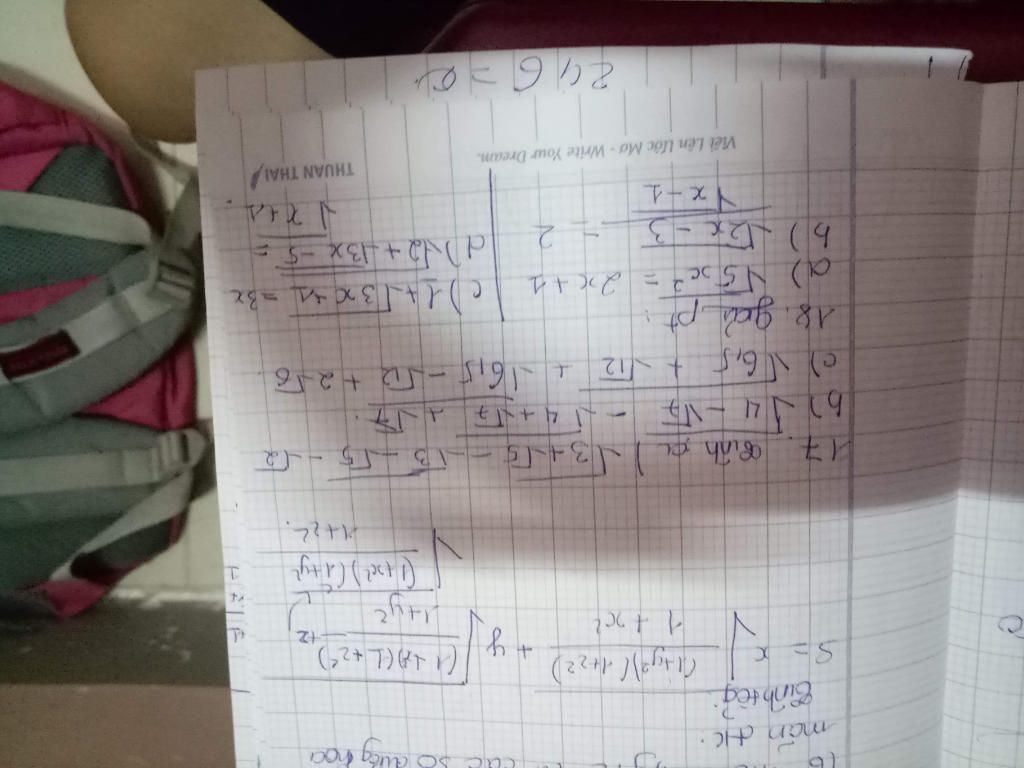 16 các số dương thỏa
mãn đk:
Tính tổng:
S = x√((1+y²)(1+z²)/(1+x²)) + y√((1+x²)(1+z²)/(1+y²)) + z√((1+x²)(1+y²)/(1+z²)).
17. Tính a) √(3+√5) - √(3-√5) - √2
b) √(4-√7) - √(4+√7) + √7.
c) √(6,5+√12) + √(6,5-√12) + 2√6
18. giải pt:
a) √(5x²) = 2x+1
b) √(2x-3)/√(x-1) = 2
c) 1+√(3x+1) = 3x
d) √(2+√(3x-5)) = √(x+1).
Viết Lên Ước Mơ - Write Your Dream.
THUAN THAI
246 = 2